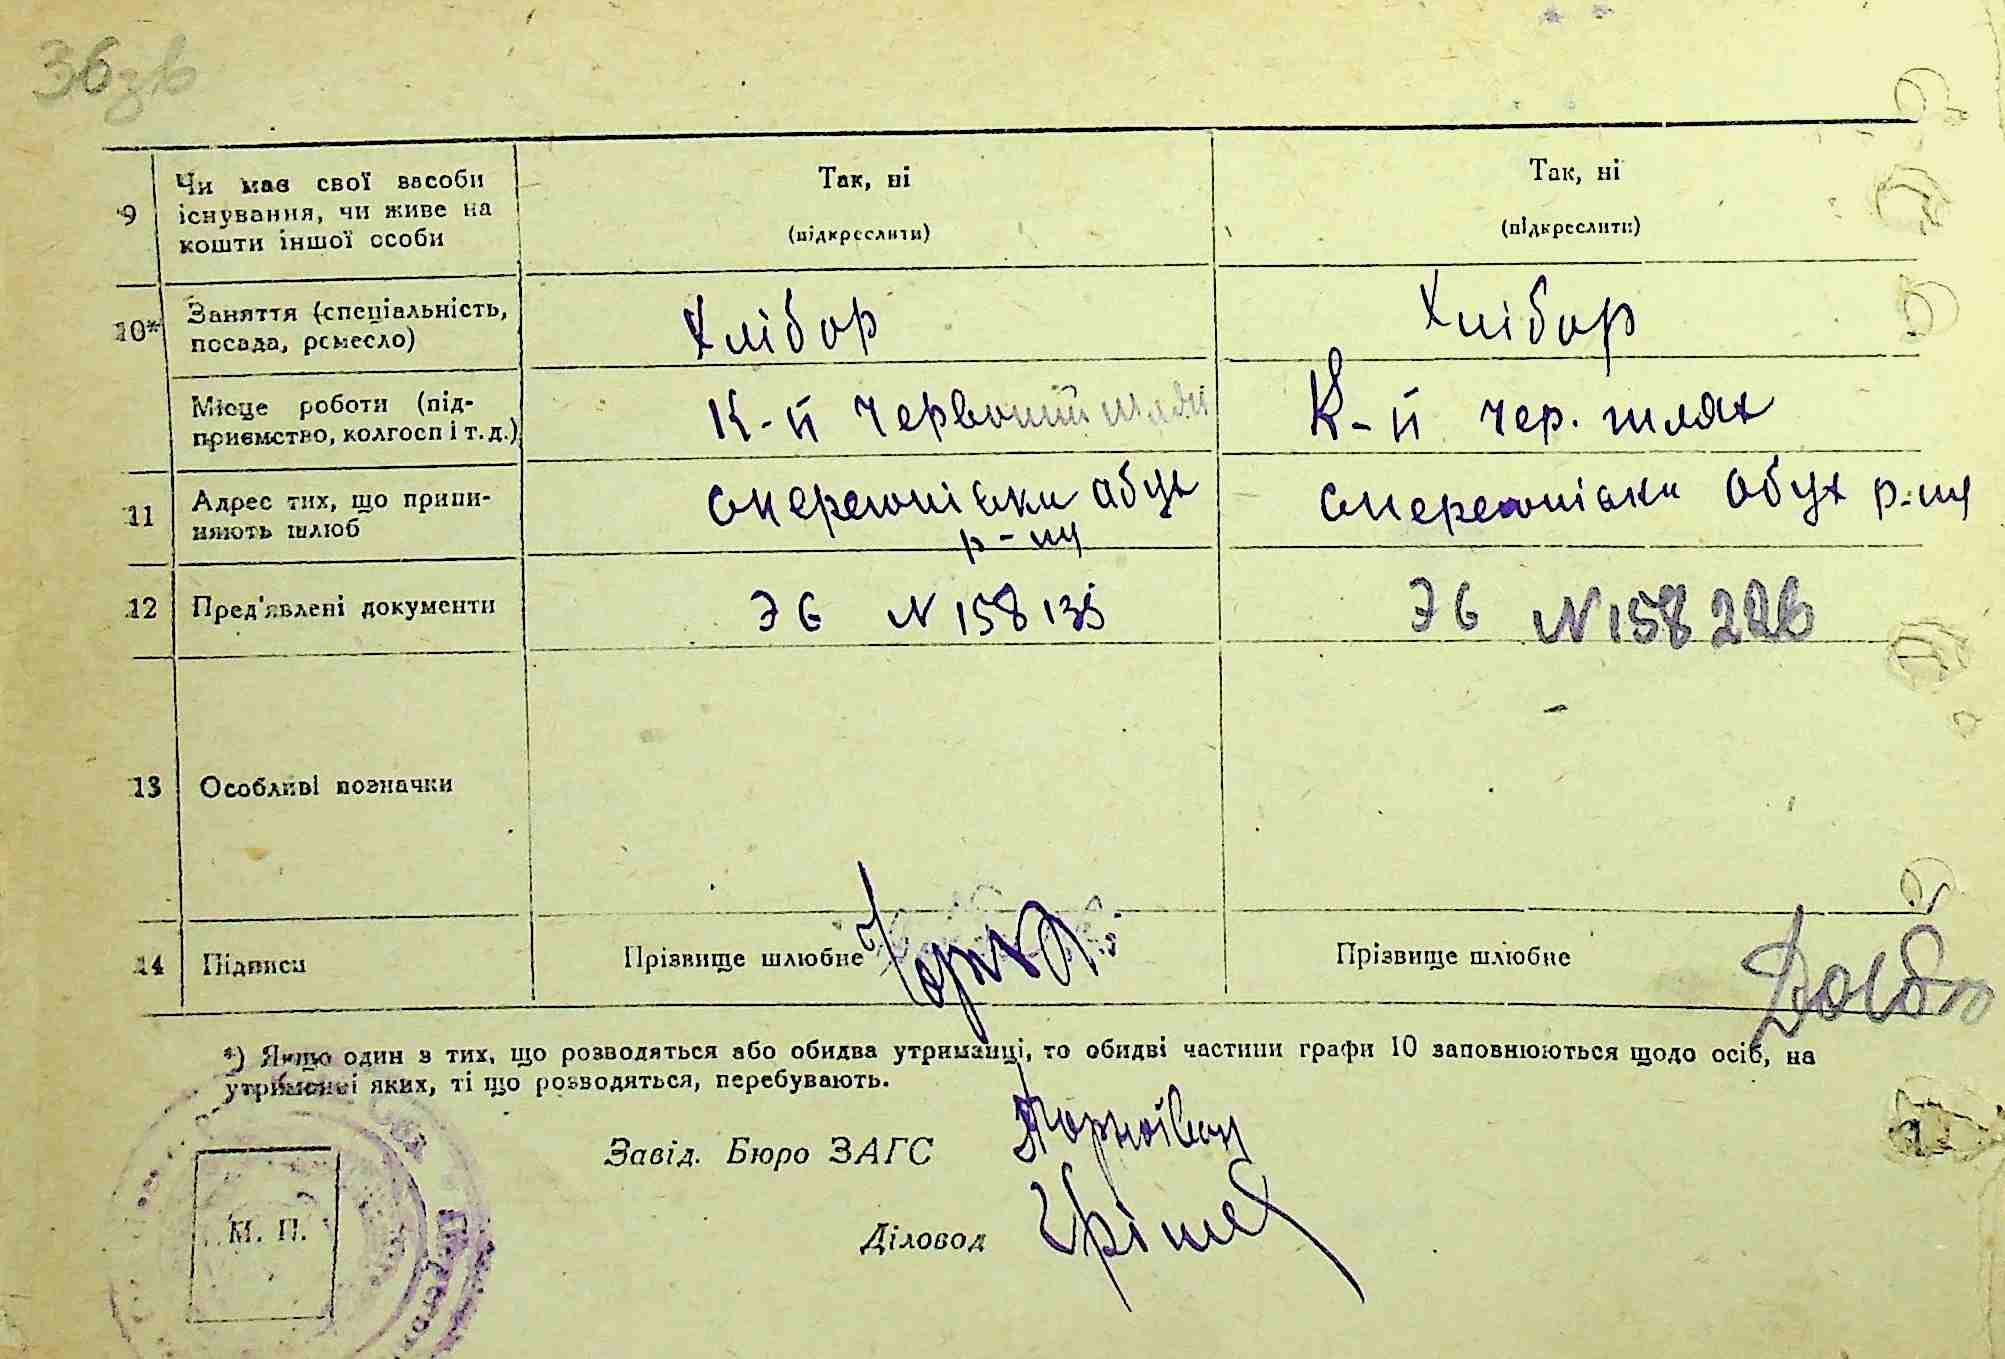 36 зв
9 Чи має свої засоби існування, чи живе на кошти іншої особи
Так, ні
(підкреслити)
Так, ні
(підкреслити)
10* Заняття (спеціальність, посада, ремесло)
Хлібор
Хлібор
Місце роботи (підприємство, колгосп і т. д.)
К-п Червоний шлях
К-п Чер. шлях
11 Адрес тих, що припиняють шлюб
р-ну
Обух р-ну
12 Пред'явлені документи
ЭБ N 158135
ЭБ N 158226
13 Особливі позначки
-
14 Підписи
Прізвище шлюбне
Прізвище шлюбне
*) Якщо один з тих, що розводяться або обидва утриманці, то обидві частини графи 10 заповнюються щодо осіб, на
утриманні яких, ті що розводяться, перебувають.
Завід. Бюро ЗАГС
Діловод
М. П.